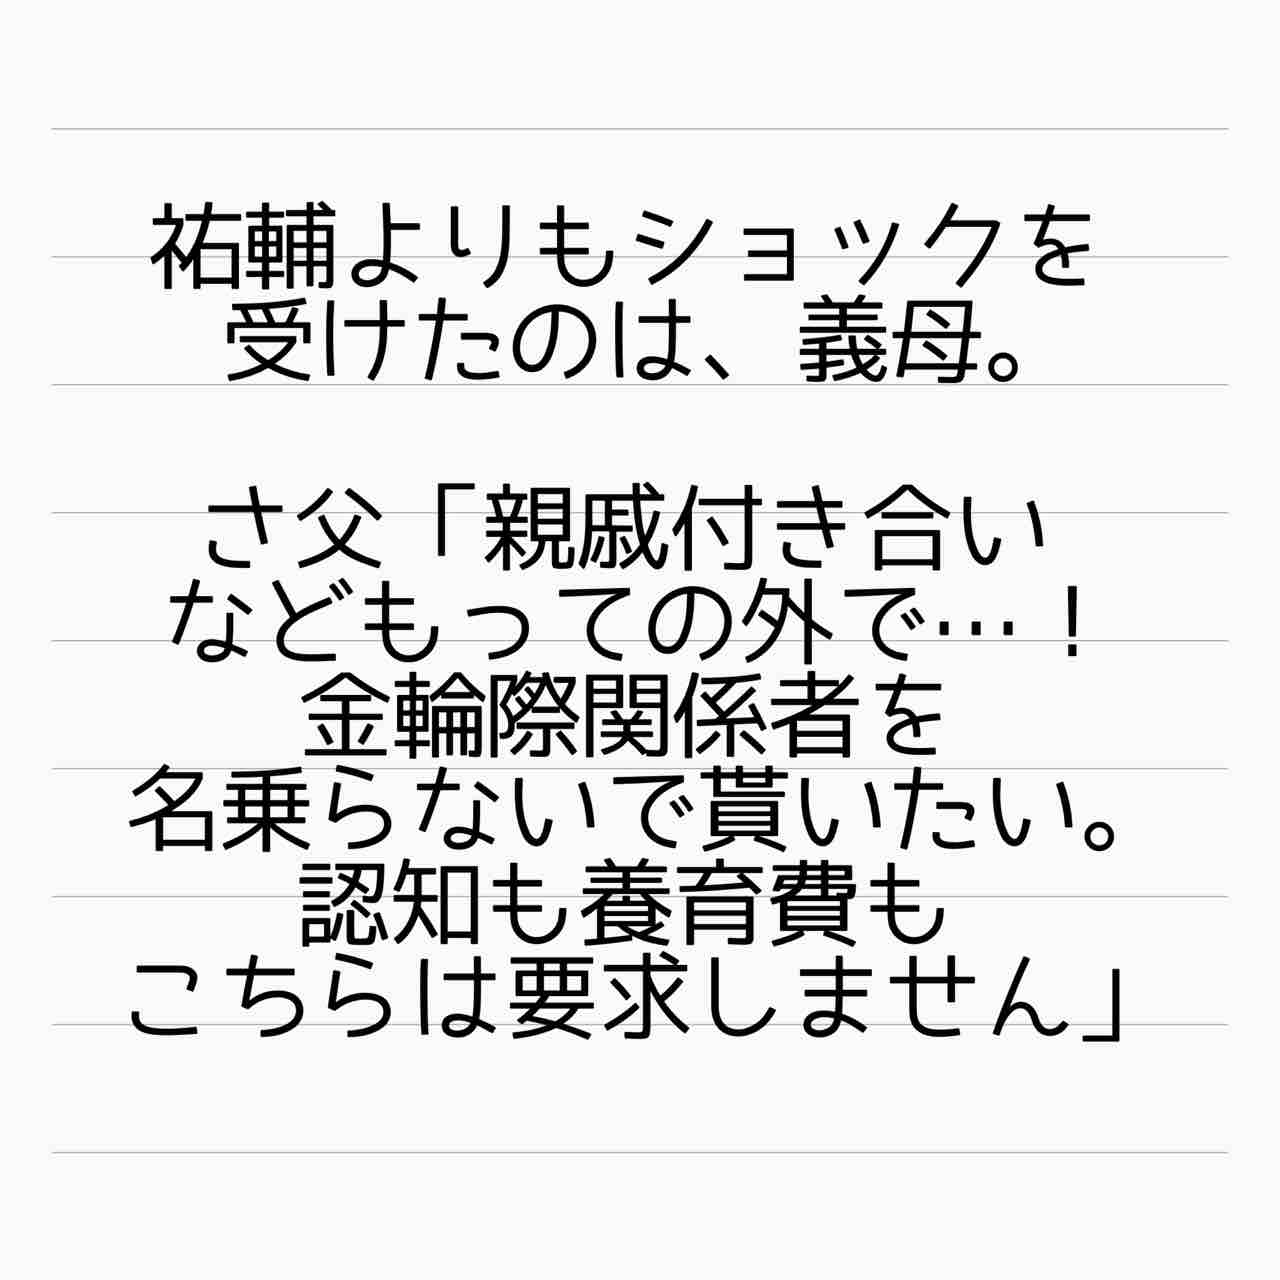 祐輔よりもショックを
受けたのは、義母。
さ父「親戚付き合い
などもっての外で…！
金輪際関係者を
名乗らないで貰いたい。
認知も養育費も
こちらは要求しません」